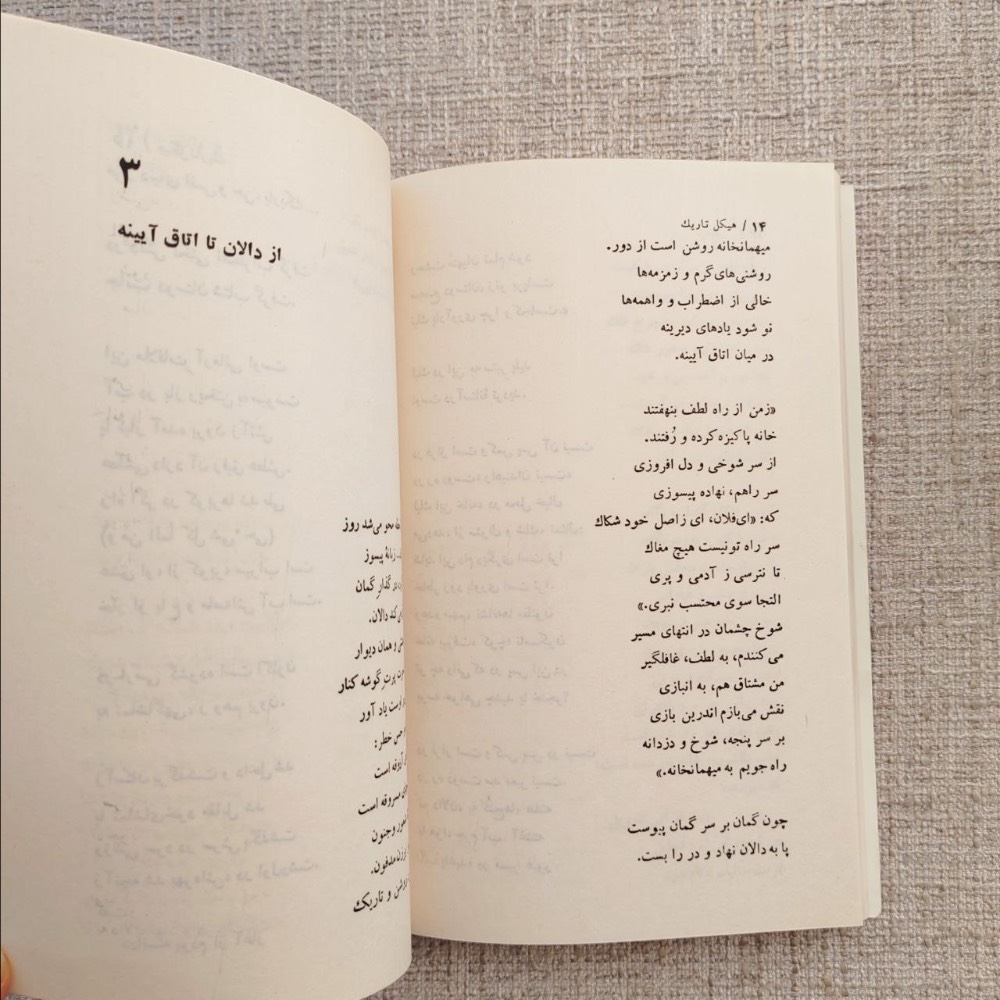 ۱۴ / هیکل تاریك
میهمانخانه روشن است از دور.
روشنی‌های گرم و زمزمه‌ها
خالی از اضطراب و واهمه‌ها
نو شود یادهای دیرینه
در میان اتاق آیینه.
«زمن از راه لطف بنهفتند
خانه پاکیزه کرده و رُفتند.
از سر شوخی و دل افروزی
سر راهم، نهاده پیسوزی
که: «ای‌فلان، ای زاصل خود شکاك
سر راه تونیست هیچ مغاك
تا نترسی ز آدمی و پری
التجا سوی محتسب نبری.»
شوخ چشمان در انتهای مسیر
می‌کنندم، به لطف، غافلگیر
من مشتاق هم، به انبازی
نقش می‌بازم اندرین بازی
بر سر پنجه، شوخ و دزدانه
راه جویم به میهمانخانه.»
چون گمان بر سر گمان پیوست
پا به دالان نهاد و در را بست.
۳
از دالان تا اتاق آیینه
محو می‌شد روز
زبانهٔ پیسوز
در گذار گمان
کند دالان.
و همان دیوار
پرتِ گوشه کنار
است یاد آور
حس خطر:
آروقه است
مسروقه است
وجنون
مدفون.
روشن و تاریك